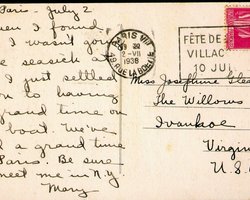 Paris - July 2
en I found
I wasn't goin
e seasick a
I just settled
on to having
grand time on
boat. We've
d a grand time
Paris. Be sure
meet me in N.Y
Mary
PARIS VIII
2 - VII
1938
FÊTE DE
VILLAC
10 JUI
Miss Josephine
The Willows
Ivanhoe
Virgin
U. S.